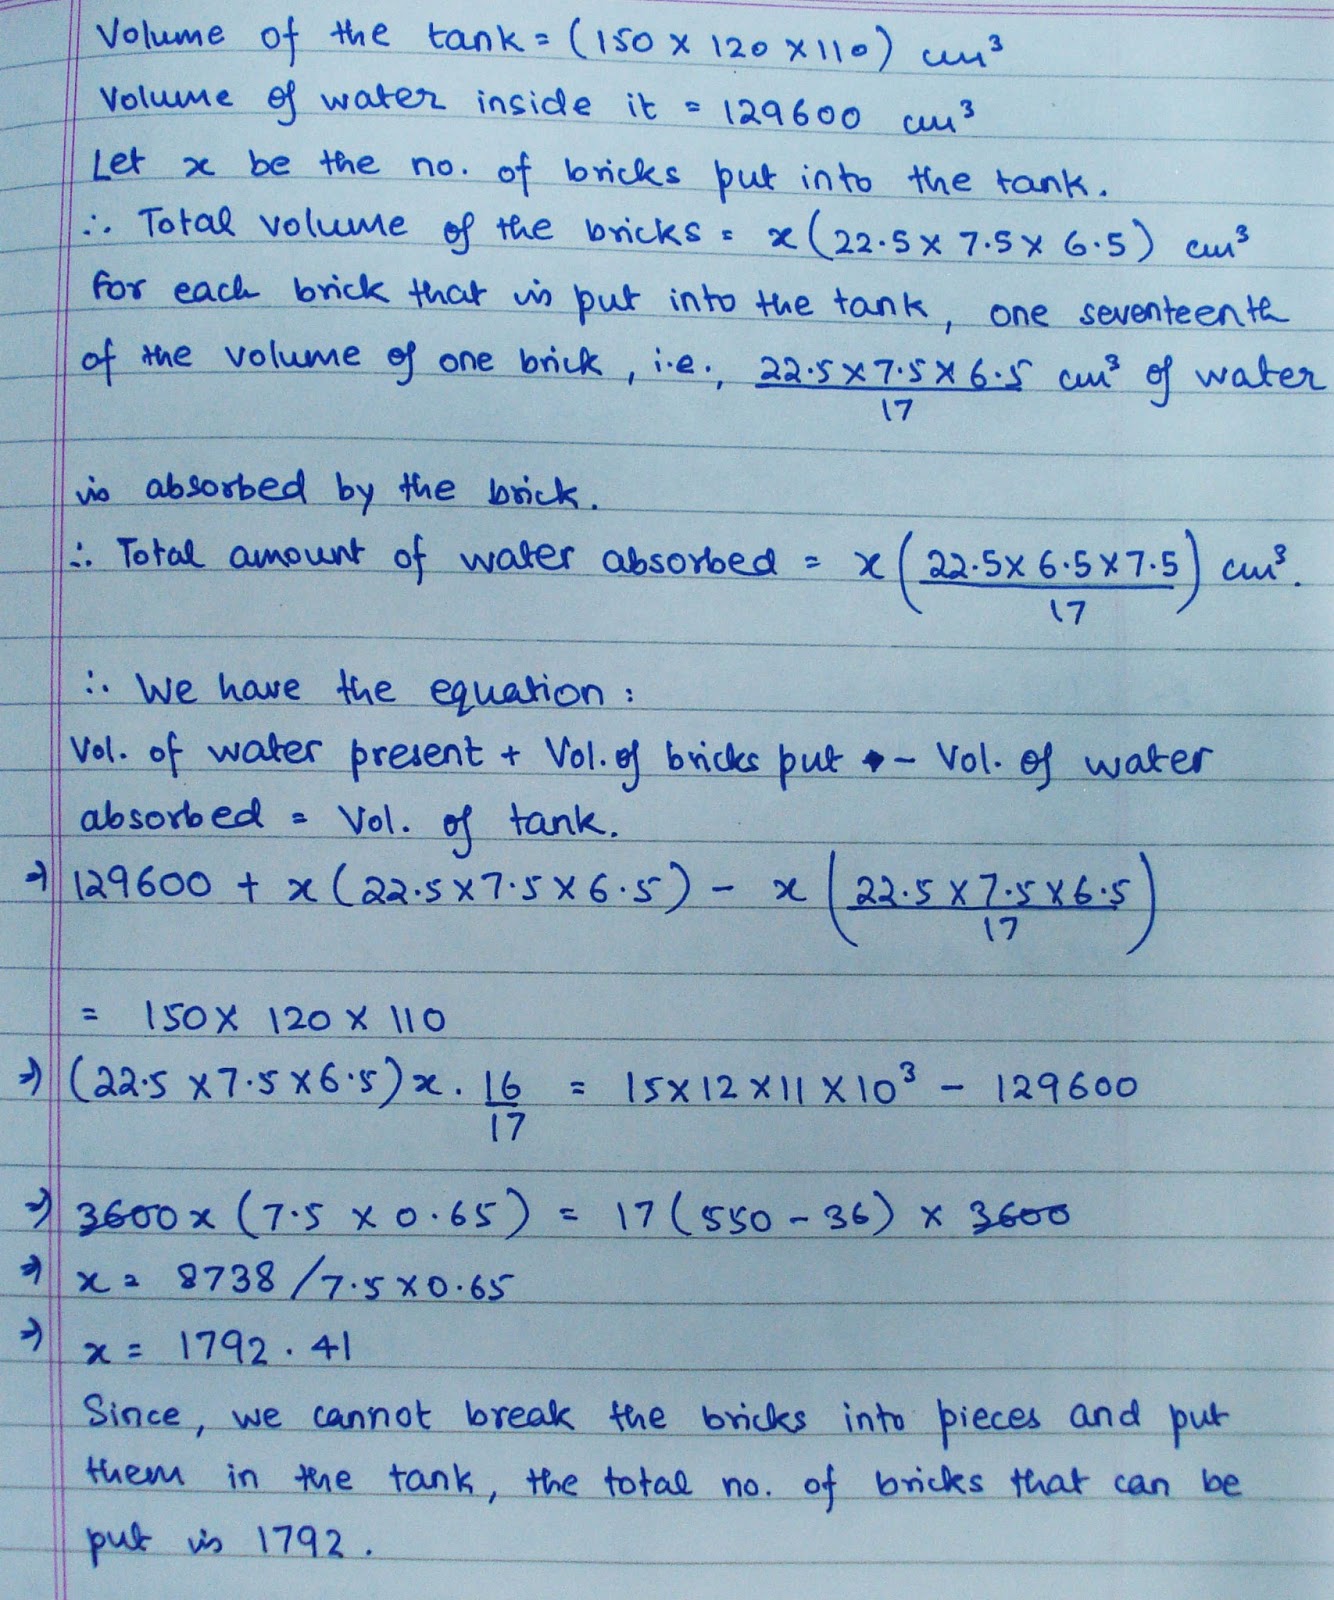 Volume of the tank = (150 × 120 × 110) cm³
Volume of water inside it = 129600 cm³
Let x be the no. of bricks put into the tank.
∴ Total volume of the bricks = x(22.5 × 7.5 × 6.5) cm³
For each brick that is put into the tank, one seventeenth
of the volume of one brick, i.e., 22.5 × 7.5 × 6.5 cm³ of water
17
is absorbed by the brick.
∴ Total amount of water absorbed = x(22.5 × 6.5 × 7.5) cm³.
17
∴ We have the equation :
Vol. of water present + Vol. of bricks put - Vol. of water
absorbed = Vol. of tank.
⇒ 129600 + x(22.5 × 7.5 × 6.5) - x(22.5 × 7.5 × 6.5)
17
= 150 × 120 × 110
⇒ (22.5 × 7.5 × 6.5) x . 16 = 15 × 12 × 11 × 10³ - 129600
17
⇒ 3600 x (7.5 × 0.65) = 17(550 - 36) × 3600
⇒ x = 8738 / 7.5 × 0.65
⇒ x = 1792.41
Since, we cannot break the bricks into pieces and put
them in the tank, the total no. of bricks that can be
put is 1792.